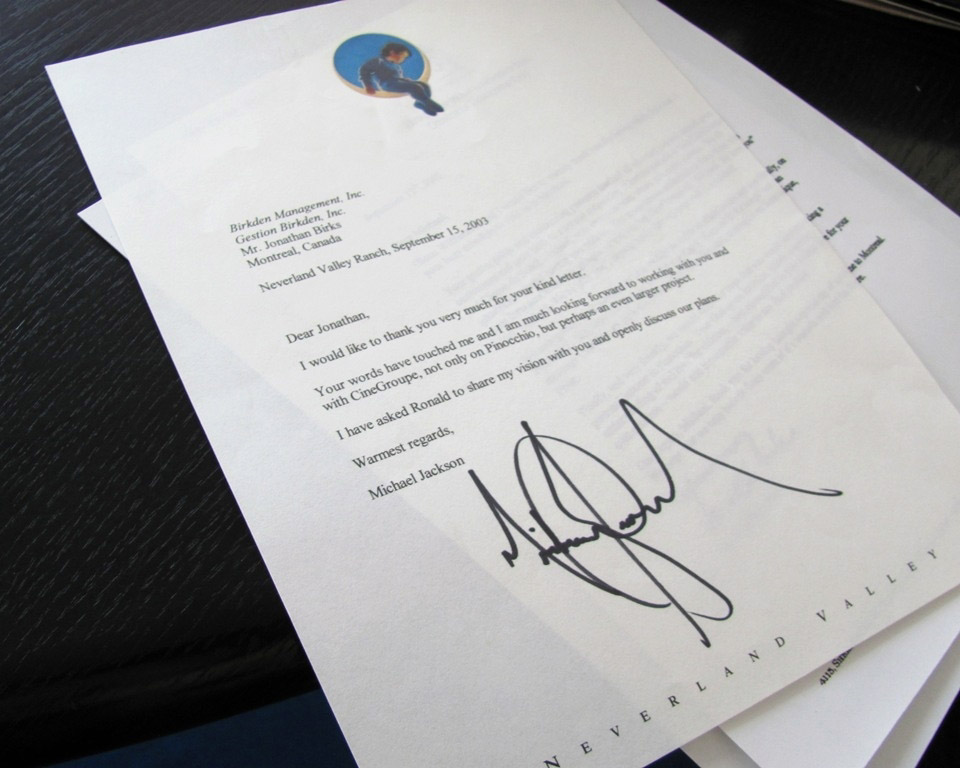 Birkden Management, Inc.
Gestion Birkden, Inc.
Mr. Jonathan Birks
Montreal, Canada
Neverland Valley Ranch, September 15, 2003
Dear Jonathan,
I would like to thank you very much for your kind letter.
Your words have touched me and I am much looking forward to working with you and
with CineGroupe, not only on Pinocchio, but perhaps an even larger project.
I have asked Ronald to share my vision with you and openly discuss our plans.
Warmest regards,
Michael Jackson
NEVERLAND VALLEY
for your
to Montreal.